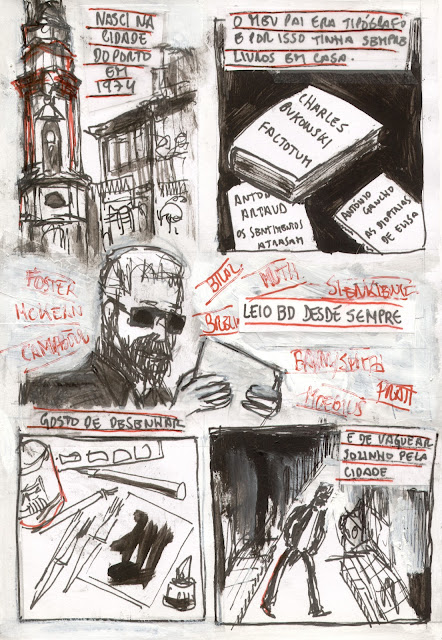 NASCI NA
CIDADE
DO PORTO
EM
1974
O MEU PAI ERA TIPÓGRAFO
E POR ISSO TINHA SEMPRE
LIVROS EM CASA.
CHARLES
BUKOWSKI
FACTOTUM
ANTONIN
ARTAUD
OS SENTIMENTOS
ATRASAM
ANTÓNIO
GANCHO
AS DIOPTRIAS
DE ELISA
FOSTER
MCKEAN
BILAL
MUTH
SIENKIEWICZ
LEIO BD DESDE SEMPRE
MOEBIUS
PRATT
GOSTO DE DESENHAR
E DE VAGUEAR
SOZINHO PELA
CIDADE